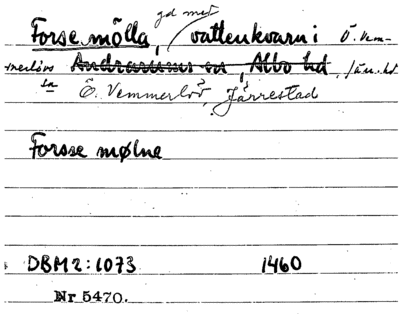 gd med
Forse mölla, vattenkvarn i Ö. Vem-
merlövs Andrarums sn, Albo hd, Järr. hd
sn Ö. Vemmerlöv, Järrestad
Forsse mølne
DBM 2:1073 1460
Nr 5470.